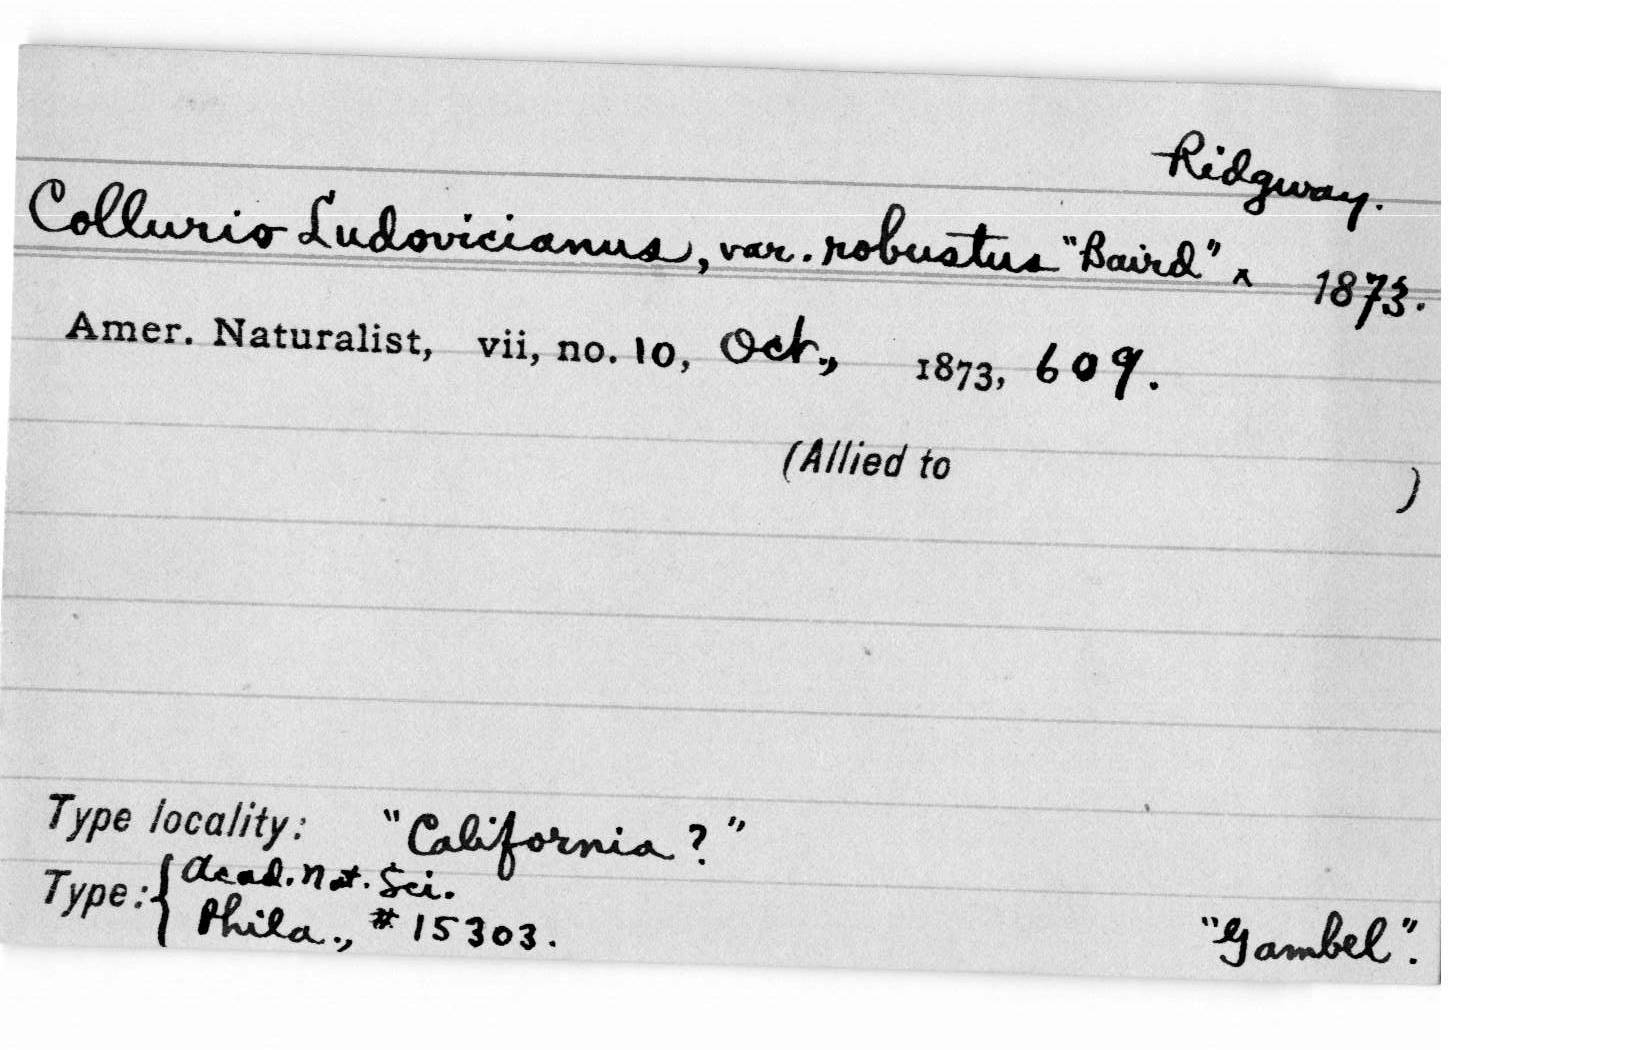 Ridgway.
Collurio Ludovicianus, var. robustus "Baird" ^ 1873.
Amer. Naturalist, vii, no. 10, Oct., 1873, 609.
(Allied to )
Type locality: "California?"
Type: { Acad. Nat. Sci.
Phila., # 15303. "Gambel".